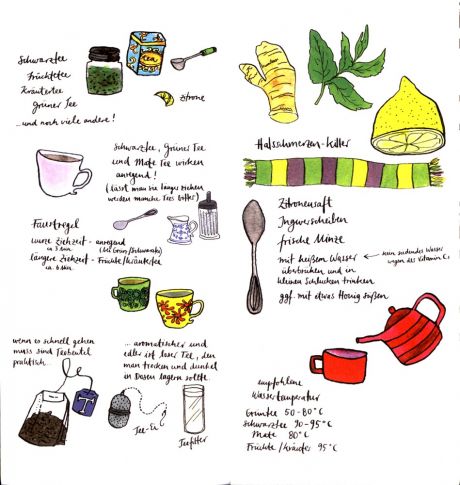 Schwarztee
Früchtetee
Kräutertee
Grüner Tee
...und noch viele andere!
tea
Zitrone
Schwarztee, Grüner Tee
und Mate Tee wirken
anregend!
(Lässt man sie lange ziehen
werden manche Tees bitter)
Faustregel
kurze Ziehzeit - anregend
ca. 3 min. (bei Grün/Schwarz)
längere Ziehzeit - Früchte/Kräutertee
ca. 6 Min.
wenn es schnell gehen
muss sind Teebeutel
praktisch...
... aromatischer und
edler ist loser Tee, den
man trocken und dunkel
in Dosen lagern sollte.
T
Tee-Ei
Teefilter
Halsschmerzen-Killer
Zitronensaft
Ingwerscheiben
frische Minze
mit heißem Wasser
überbrühen und in
kleinen Schlucken trinken
ggf. mit etwas Honig süßen
kein siedendes Wasser
wegen des Vitamin C!
empfohlene
Wassertemperatur
Grüntee 50-80°C
Schwarztee 90-95°C
Mate 80°C
Früchte/Kräuter 95°C